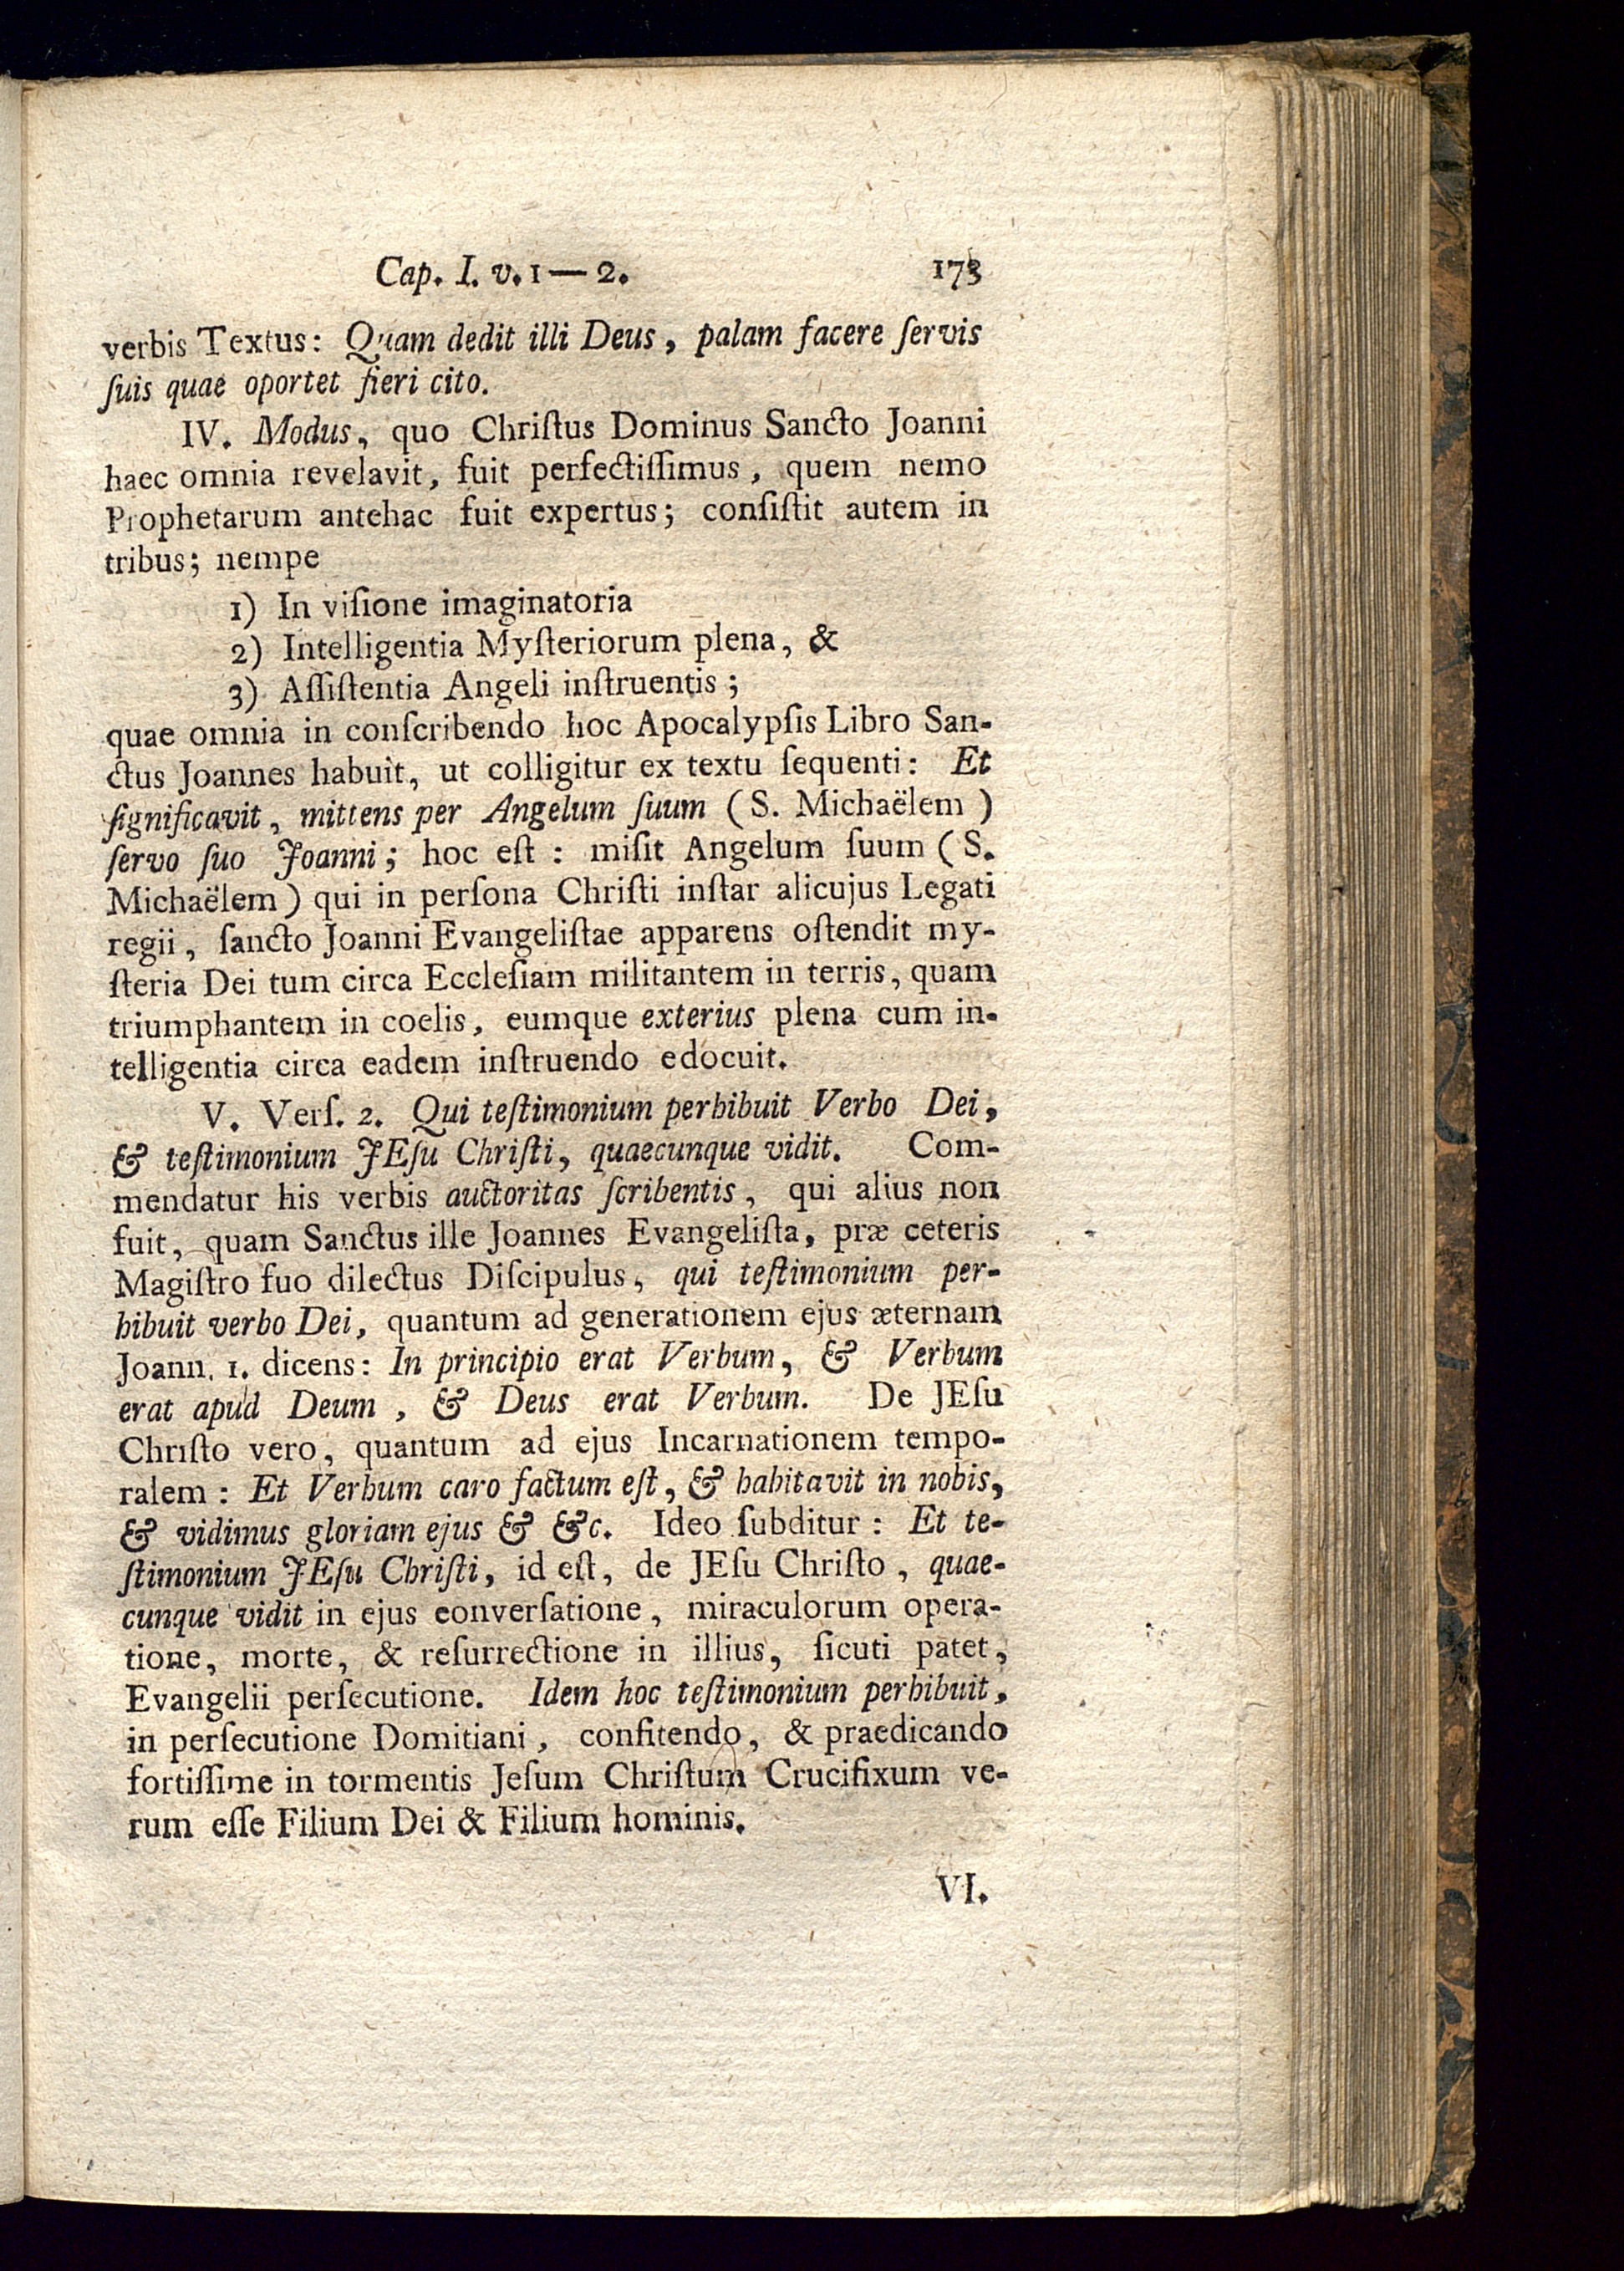 Cap. I. v. 1 — 2. 173
verbis Textus: Quam dedit illi Deus, palam facere ſervis
ſuis quae oportet fieri cito.
IV. Modus, quo Chriſtus Dominus Sancto Joanni
haec omnia revelavit, fuit perfectiſſimus, quem nemo
Prophetarum antehac fuit expertus; conſiſtit autem in
tribus; nempe
1) In viſione imaginatoria
2) Intelligentia Myſteriorum plena, &
3) Aſſiſtentia Angeli inſtruentis;
quae omnia in conſcribendo hoc Apocalypſis Libro San-
ctus Joannes habuit, ut colligitur ex textu ſequenti: Et
ſignificavit, mittens per Angelum ſuum (S. Michaëlem)
ſervo ſuo Joanni; hoc eſt: miſit Angelum ſuum (S.
Michaëlem) qui in perſona Chriſti inſtar alicujus Legati
regii, ſancto Joanni Evangeliſtae apparens oſtendit my-
ſteria Dei tum circa Eccleſiam militantem in terris, quam
triumphantem in coelis, eumque exterius plena cum in-
telligentia circa eadem inſtruendo edocuit.
V. Verſ. 2. Qui teſtimonium perhibuit Verbo Dei,
& teſtimonium JEſu Chriſti, quaecunque vidit. Com-
mendatur his verbis auctoritas ſcribentis, qui alius non
fuit, quam Sanctus ille Joannes Evangeliſta, præ ceteris
Magiſtro ſuo dilectus Diſcipulus, qui teſtimonium per-
hibuit verbo Dei, quantum ad generationem ejus æternam
Joann. 1. dicens: In principio erat Verbum, & Verbum
erat apud Deum, & Deus erat Verbum. De JEſu
Chriſto vero, quantum ad ejus Incarnationem tempo-
ralem: Et Verbum caro factum eſt, & habitavit in nobis,
& vidimus gloriam ejus & &c. Ideo ſubditur: Et te-
ſtimonium JEſu Chriſti, id eſt, de JEſu Chriſto, quae-
cunque vidit in ejus converſatione, miraculorum opera-
tione, morte, & reſurrectione in illius, ſicuti patet,
Evangelii perſecutione. Idem hoc teſtimonium perhibuit,
in perſecutione Domitiani, confitendo, & praedicando
fortiſſime in tormentis Jeſum Chriſtum Crucifixum ve-
rum eſſe Filium Dei & Filium hominis.
VI.